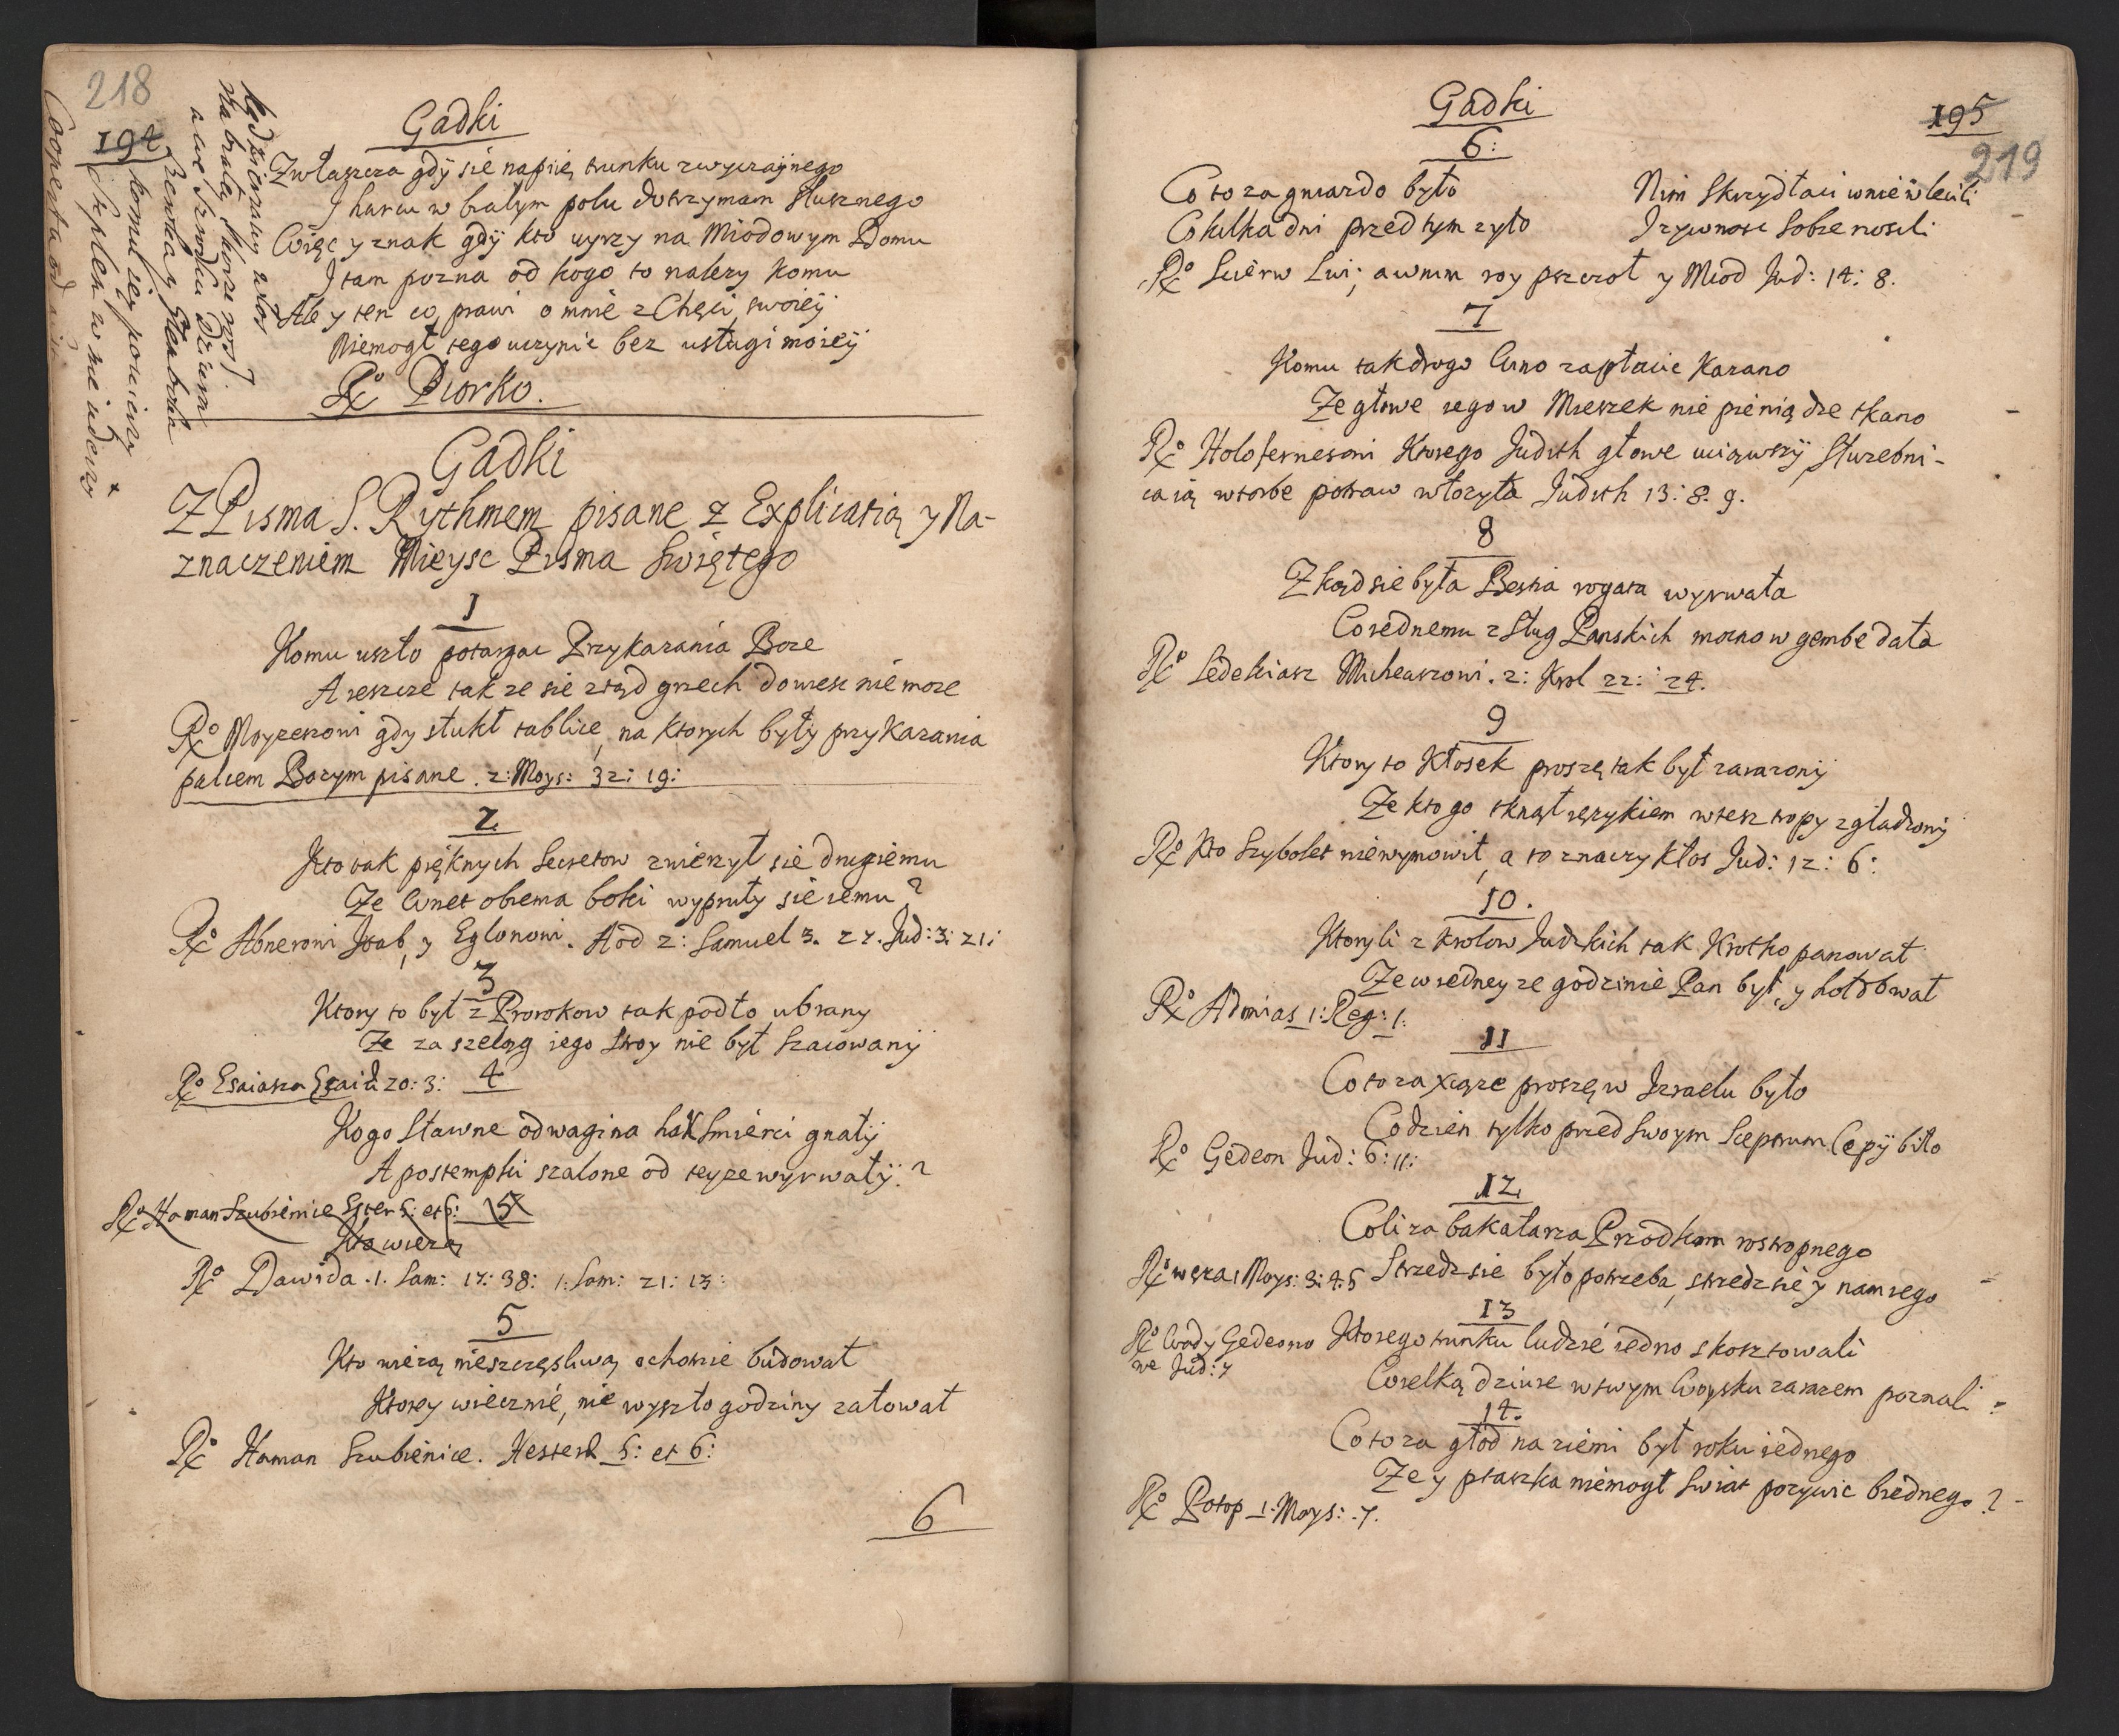 218
194
Gadki
Zwłaszcza gdÿ sie napiię trunku zwyczaÿnego
J harcu w białym polu dotrzymam słusznego
Więc y znak gdÿ kto uyrzy na Miodowym Domu
J tam pozna od kogo to nalezy komu
Ale y ten co prawi o mnie z Chęci swoieÿ
Niemogł tego uczynic bez usługi moieÿ
Rº Piorko.
Gadki
Z Pisma S. Rythmem pisane z Explicatią y Na-
znaczeniem Mieysc Pisma Swiętego
1
Komu uszło potargac Przykazania Boze
A ieszcze tak ze sie ztąd grzech dowiesc nie moze
Rº Moyzeszowi gdy stukł tablice, na ktorych były przykazania
palcem Bozym pisane. 2: Moys: 32: 19:
2.
Kto tak pięknych Secretow zwierzył sie drugiemu
Ze wnet obiema boki wypruły sie iemu?
Rº Abnerowi Joab, y Eglonowi. Aod 2: Samuel 3. 27. Jud: 3: 21:
3
Ktory to był z Prorokow tak podło ubrany
Ze za szeląg iego stroy nie był szacowanÿ
Rº Esaiasza Esaiæ 20: 3:
4
Kogo sławne odwagi na hak smierci gnałÿ
A postempki szalone od teyze wyrwałÿ?
Rº Haman Szubienice Ester 5: et 6: 5
Kto wiezą
Rº Dawida. 1. Sam: 17: 38: 1. Sam: 21: 13:
5
Kto wiezą nieszczęsliwą ochotnie budował
Ktorey wiecznie, nie wyszło godziny załował
Rº Haman Szubienice. Hester 5: et 6:
6
Gadki
195
219
6:
Co to za gniazdo było
Co kilka dni przed tym zyło
Nim Skrzydłaci w nie wlecili
J zywnosc sobie nosili
Rº Scierw Lwi; a w nim roy pszczoł y Miod Jud: 14: 8.
7
Komu tak drogo wino zapłacic kazano
Ze głowe iego w Mieszek nie pieniądze tkano
Rº Holofernesowi Ktorego Judith głowe uciąwszÿ, Słuzebni-
ca ią w torbe potraw włozyła Judith 13: 8. 9.
8
Zkąd sie była Bestia rogata wyrwała
Co iednemu z Sług Panskich mocno w gembe dała
Rº Sedekiasz Micheaszowi. 2: Krol 22: 24.
9
Ktory to Kłosek proszę tak był zarazonÿ
Ze kto go tknął ięzykiem wtesz tropy zgładzonÿ
Rº Kto Szybolet niewymowił, a to znaczy Kłos Jud: 12: 6:
10.
Ktoryli z krolow Judzkich tak Krotko panował
Ze w iedneyze godzinie Pan był, y hołdował
Rº Adonias 1: Reg: 1:
11
Co to za xiąze proszę w Izraelu było
Co dzien tylko przed swoym Sceptrum Cepÿ biło
Rº Gedeon Jud: 6: 11:
12.
Coli za bakałarza Przodkom rostropnego
Strzedz sie było potrzeba, strzedz sie y nam iego
Rº węza 1 Moys: 3: 4. 5
13
Ktorego trunku ludzie iedno skosztowali
Co wielką dziure w twym Woysku zarazem poznali?
Rº Wody Gedeono
we Jud: 7
14.
Co to za głod na ziemi był roku iednego
Ze y ptaszka niemogł swiat pozywic biednego?
Rº Potop 1. Moys: 7.